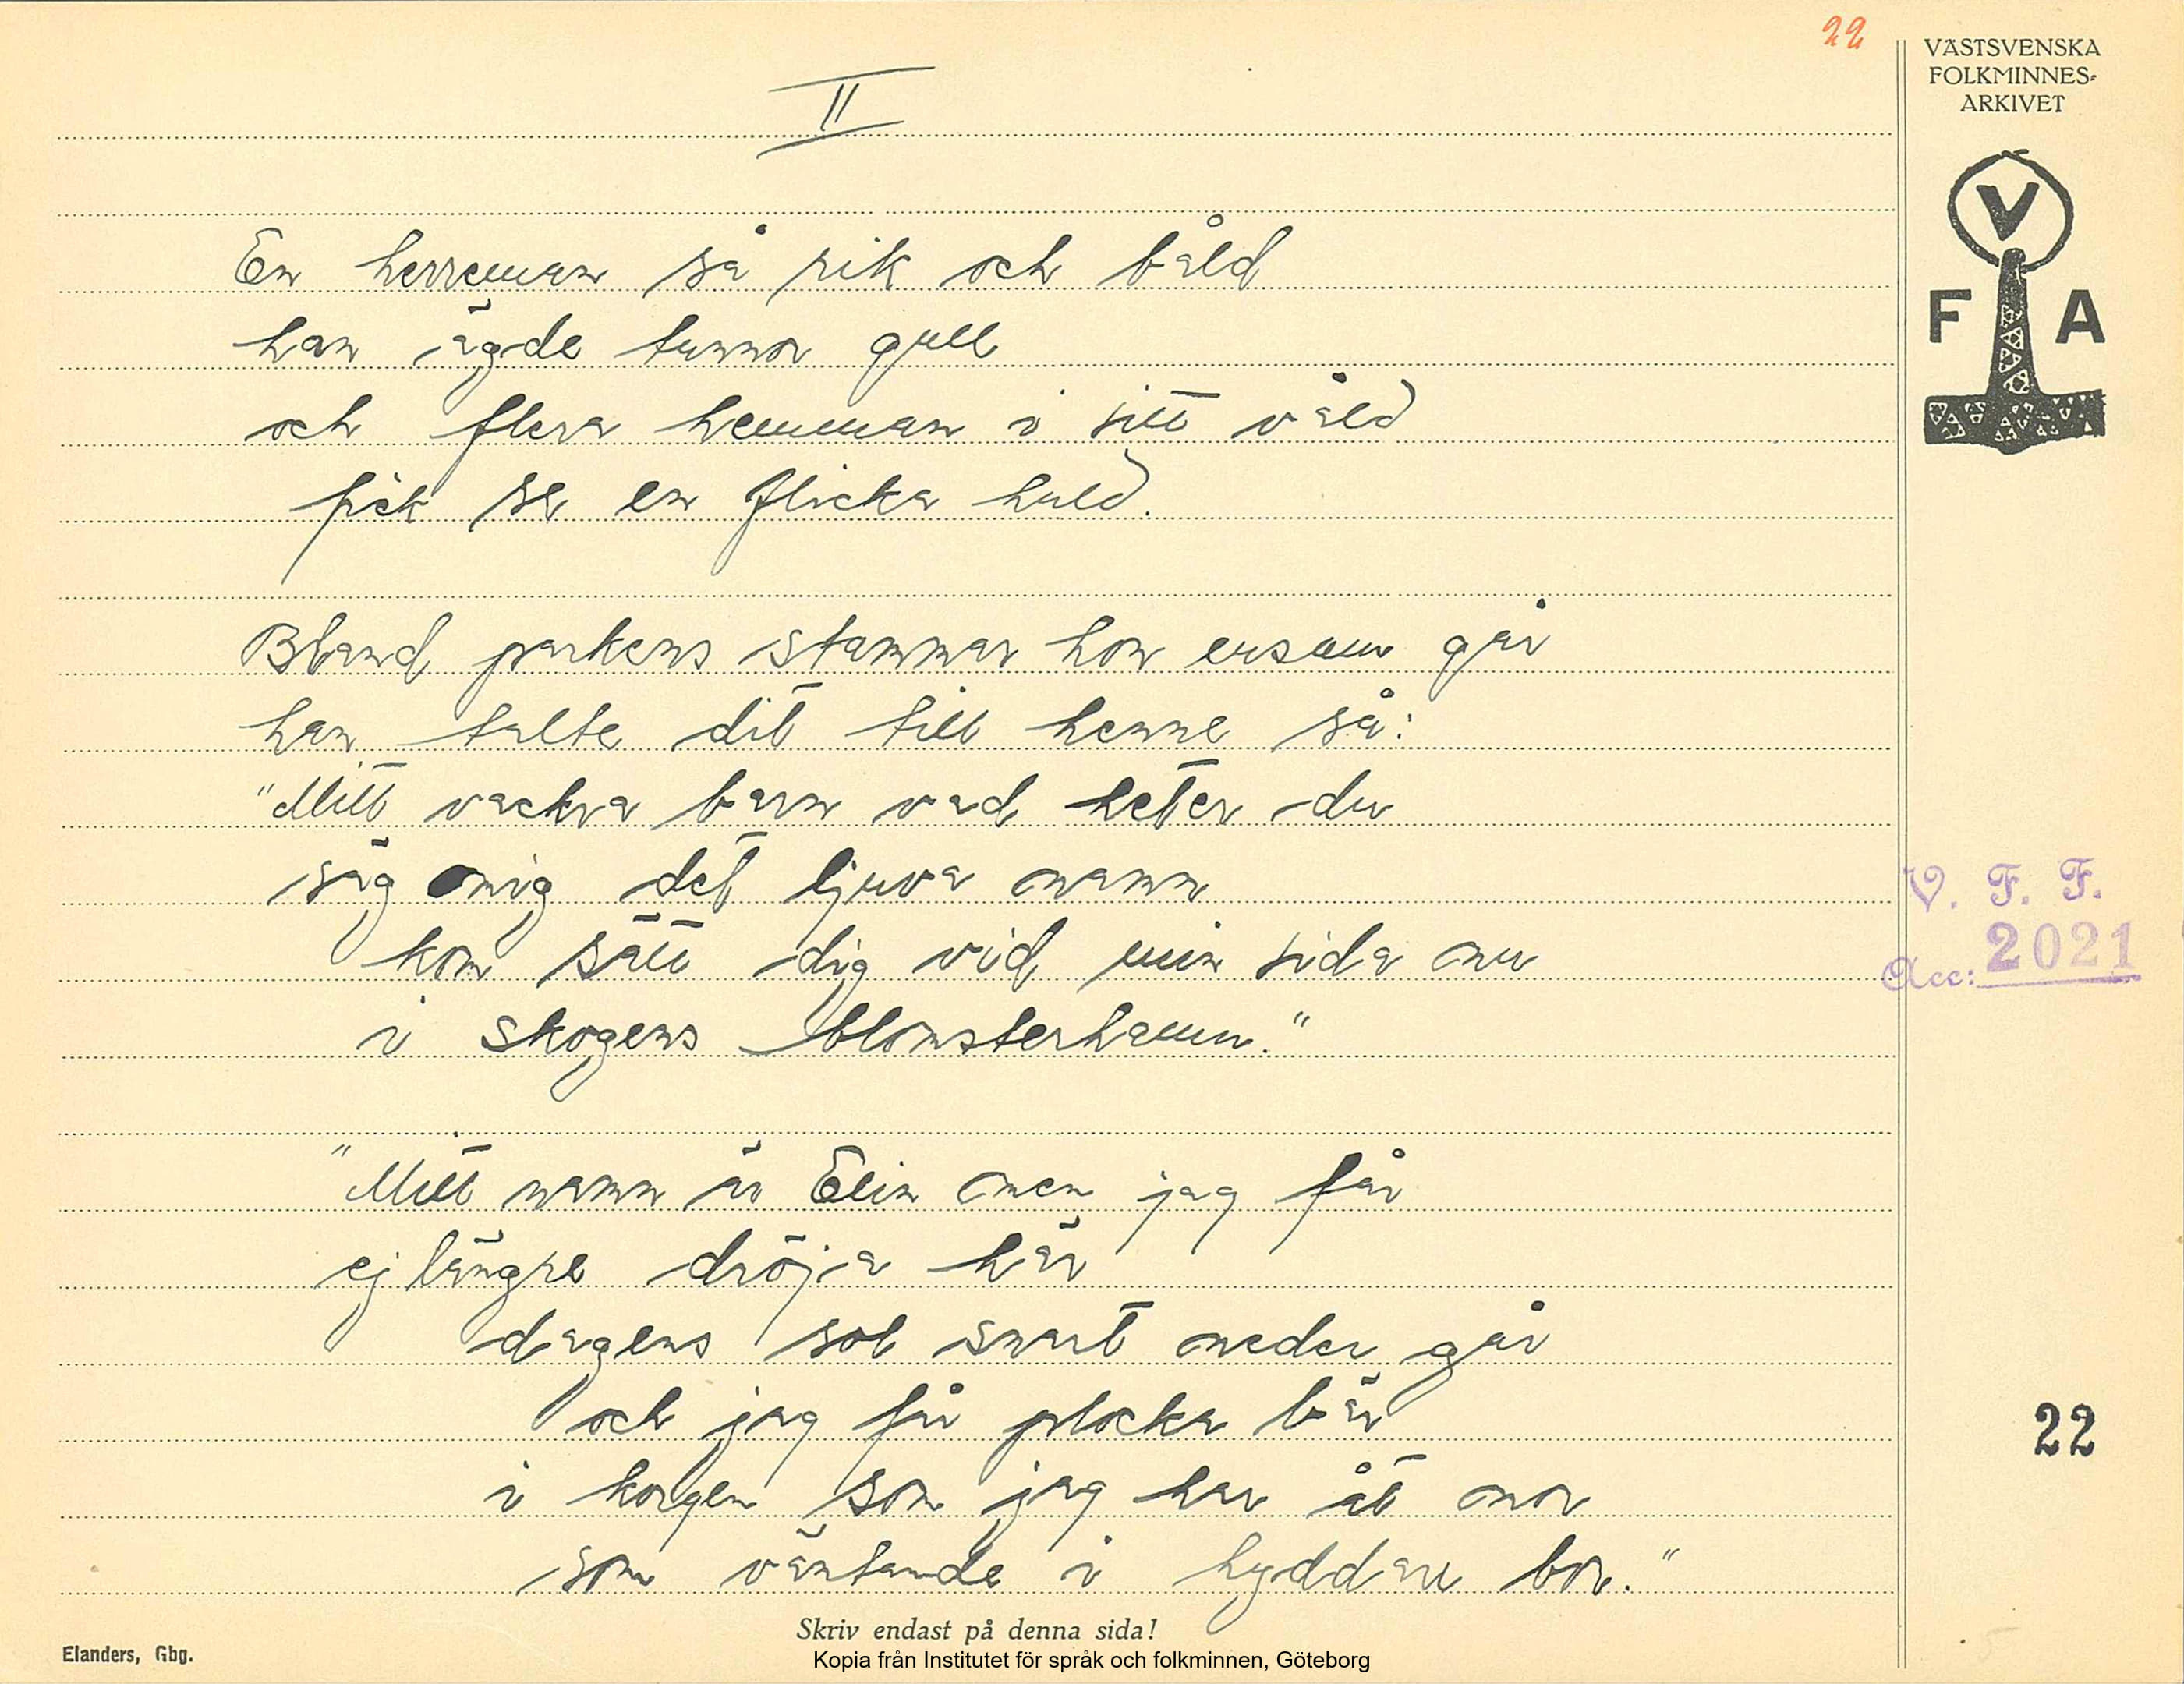 22
VÄSTSVENSKA
FOLKMINNES-
ARKIVET
V
F A
II
En herreman så rik och båld
han ägde tunnor gull
och flera hemman i sitt våld
fick se en flicka huld.
Bland parkens stammar hon ensam går
han talte dit till henne så:
"Mitt vackra barn vad heter du
säg mig det ljuva namn
kom sätt dig vid min sida nu
i skogens blomsterhamn."
V. F. F.
Acc: 2021
"Mitt namn är Elin men jag får
ej längre dröja här
dagens sol snart neder går
och jag får plocka bär
i korgen som jag har åt mor
som väntande i hyddan bor."
22
Skriv endast på denna sida!
Elanders, Gbg.
Kopia från Institutet för språk och folkminnen, Göteborg